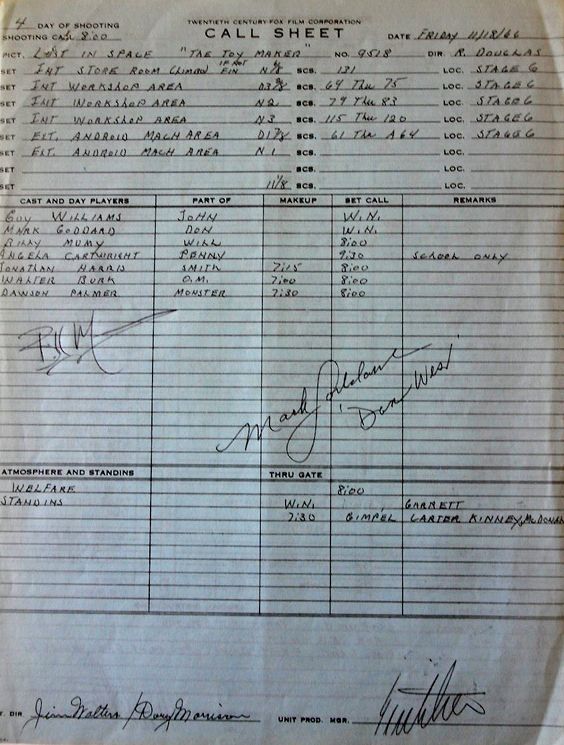 TWENTIETH CENTURY-FOX FILM CORPORATION
4 DAY OF SHOOTING
CALL SHEET
SHOOTING CALL 8:00 DATE FRIDAY 11/18/66
PICT. LOST IN SPACE "THE TOY MAKER" NO. 9518 DIR. R. DOUGLAS
SET INT STORE ROOM IF NOT FIN N SCS. 131 LOC. STAGE 6
SET INT WORKSHOP AREA SCS. 64 THRU 75 LOC. STAGE 6
SET INT WORKSHOP AREA N2 SCS. 79 THRU 83 LOC. STAGE 6
SET INT WORKSHOP AREA N3 SCS. 115 THRU 120 LOC. STAGE 6
SET EXT. ANDROID MACH AREA SCS. 61 THRU A64 LOC. STAGE 6
SET EXT. ANDROID MACH AREA N1 SCS. LOC.
SET SCS. LOC.
SET SCS. LOC.
CAST AND DAY PLAYERS PART OF MAKEUP SET CALL REMARKS
GUY WILLIAMS JOHN W.N.
MARK GODDARD DON W.N.
BILLY MUMY WILL 8:00
ANGELA CARTWRIGHT PENNY 9:30 SCHOOL ONLY
JONATHAN HARRIS SMITH 7:15 8:00
WALTER BURK O.M. 7:00 8:00
DAWSON PALMER MONSTER 7:30 8:00
Bill M
Mark Goddard
'Don West'
ATMOSPHERE AND STANDINS THRU GATE
WELFARE 8:00
STANDINS W.N. GARRETT
7:30 GIMPEL CARTER KINNEY, McDONAN
T. DIR Jim Walters / Dory Morrison UNIT PROD. MGR.